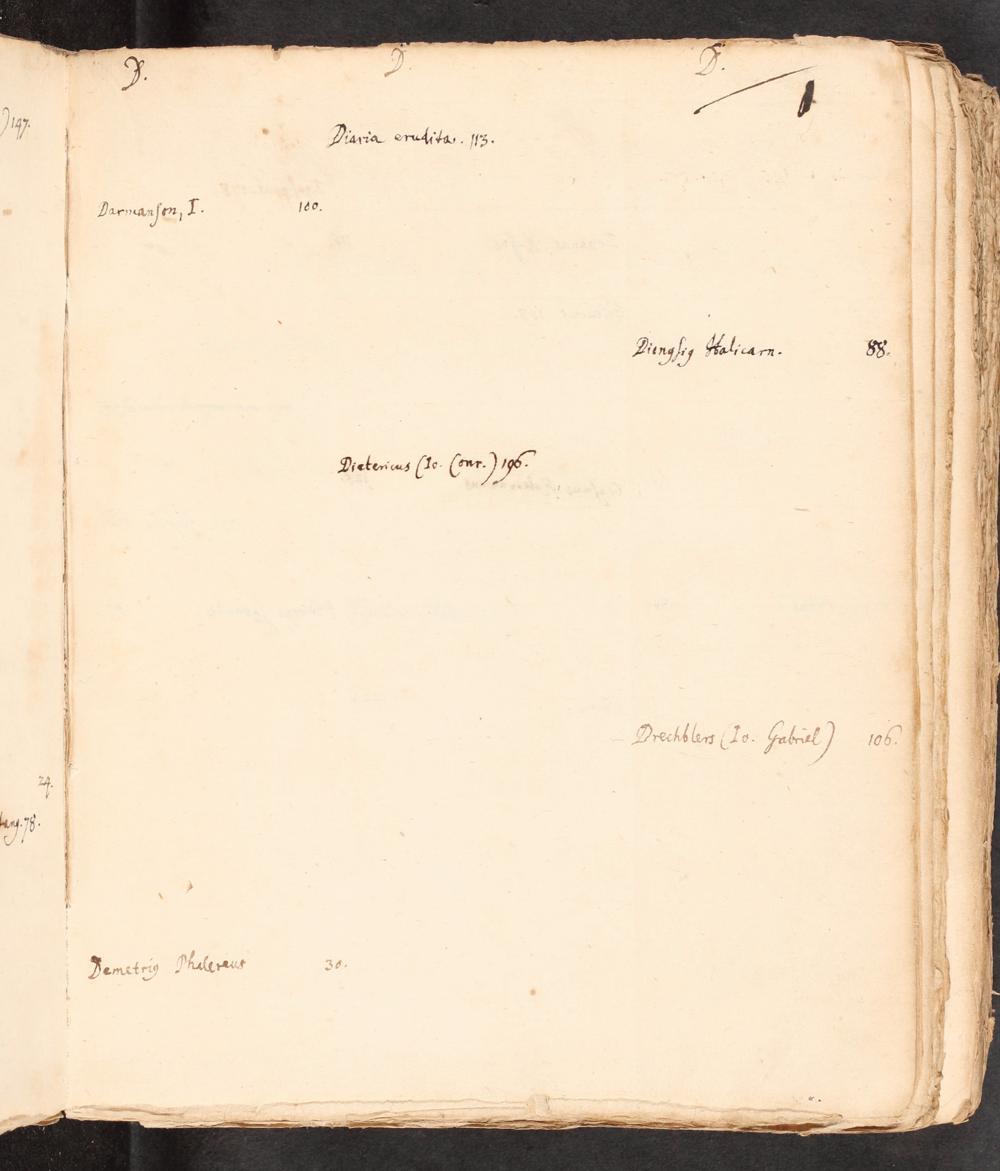 D. D. D.
) 147.
Diaria erudita. 113.
Darmanson, I. 100.
Dionysig Halicarn. 88.
Dietericus (Io. Conr.) 196.
Drechblers (Io. Gabriel) 106.
24.
78.
Demetrig Phalereus 30.